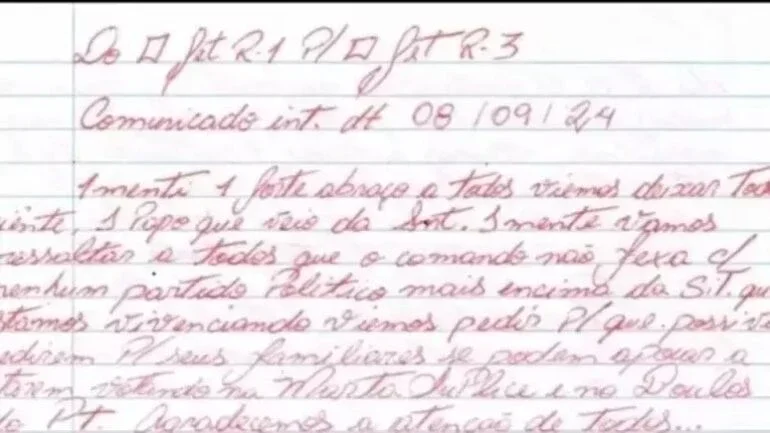 Do □ Jet R-1 P/ □ Jet R-3
Comunicado int. dt 08/09/24
1menti 1 forte abraço a todos viemos deixar Tod
iente, 1 Papo que veio da Snt. 1mente vamos
ressaltar a todos que o comando não fexa c/
nenhum partido Politico mais encima da S.T. qu
stamos vivenciando viemos pedir P/ que possive
edirem P/ seus familiares se podem apoiar a
terem votando na Marta Suplice e no Boulos
do Pt. Agradecemos a atenção de Todos...